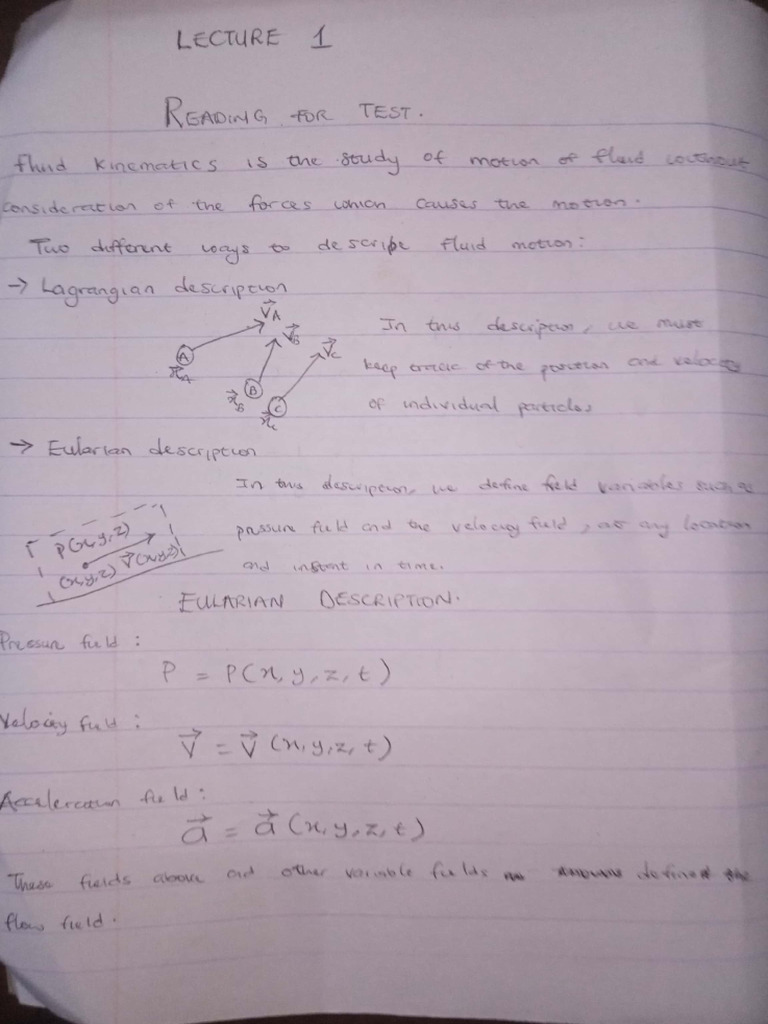 LECTURE 1
READING FOR TEST.
fluid kinematics is the study of motion of fluid without
consideration of the forces which causes the motion.
Two different ways to describe fluid motion:
→ Lagrangian description
V⃗A
V⃗B
V⃗C
A
B
C
x⃗A
x⃗B
x⃗C
In this description, we must
keep track of the position and velocity
of individual particles
→ Eularian description
In this description, we define field variables such as
pressure field and the velocity field, at any location
and instant in time.
P(x,y,z)
(x,y,z) V⃗(x,y,z)
EULARIAN DESCRIPTION.
Pressure field :
P = P(x, y, z, t)
Velocity field :
V⃗ = V⃗ (x, y, z, t)
Acceleration field :
a⃗ = a⃗ (x, y, z, t)
These fields above and other variable fields define the
flow field.